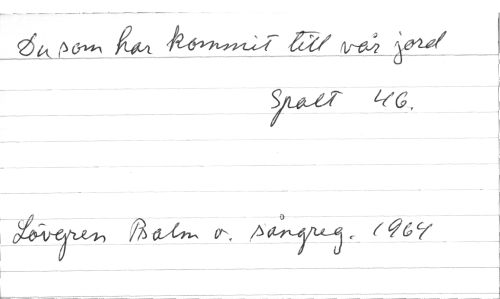 Du som har kommit till vår jord
Spalt 46.
Lövgren Psalm o. sångreg. 1964